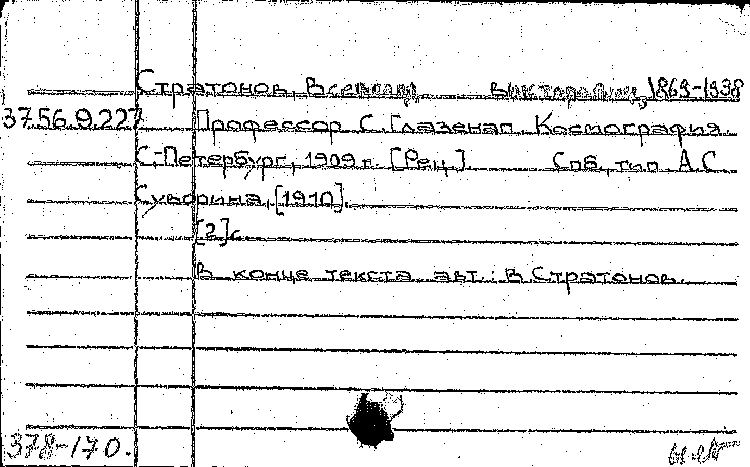 Стратонов, Всеволод Викторович, 1869-1938
37.56.9.227 Профессор С. Глазенап. Космография.
С.-Петербург, 1909 г. [Рец.]. Спб, тип. А.С.
Суворина, [1910].
[2] с.
В конце текста авт.: В. Стратонов.
378-170.